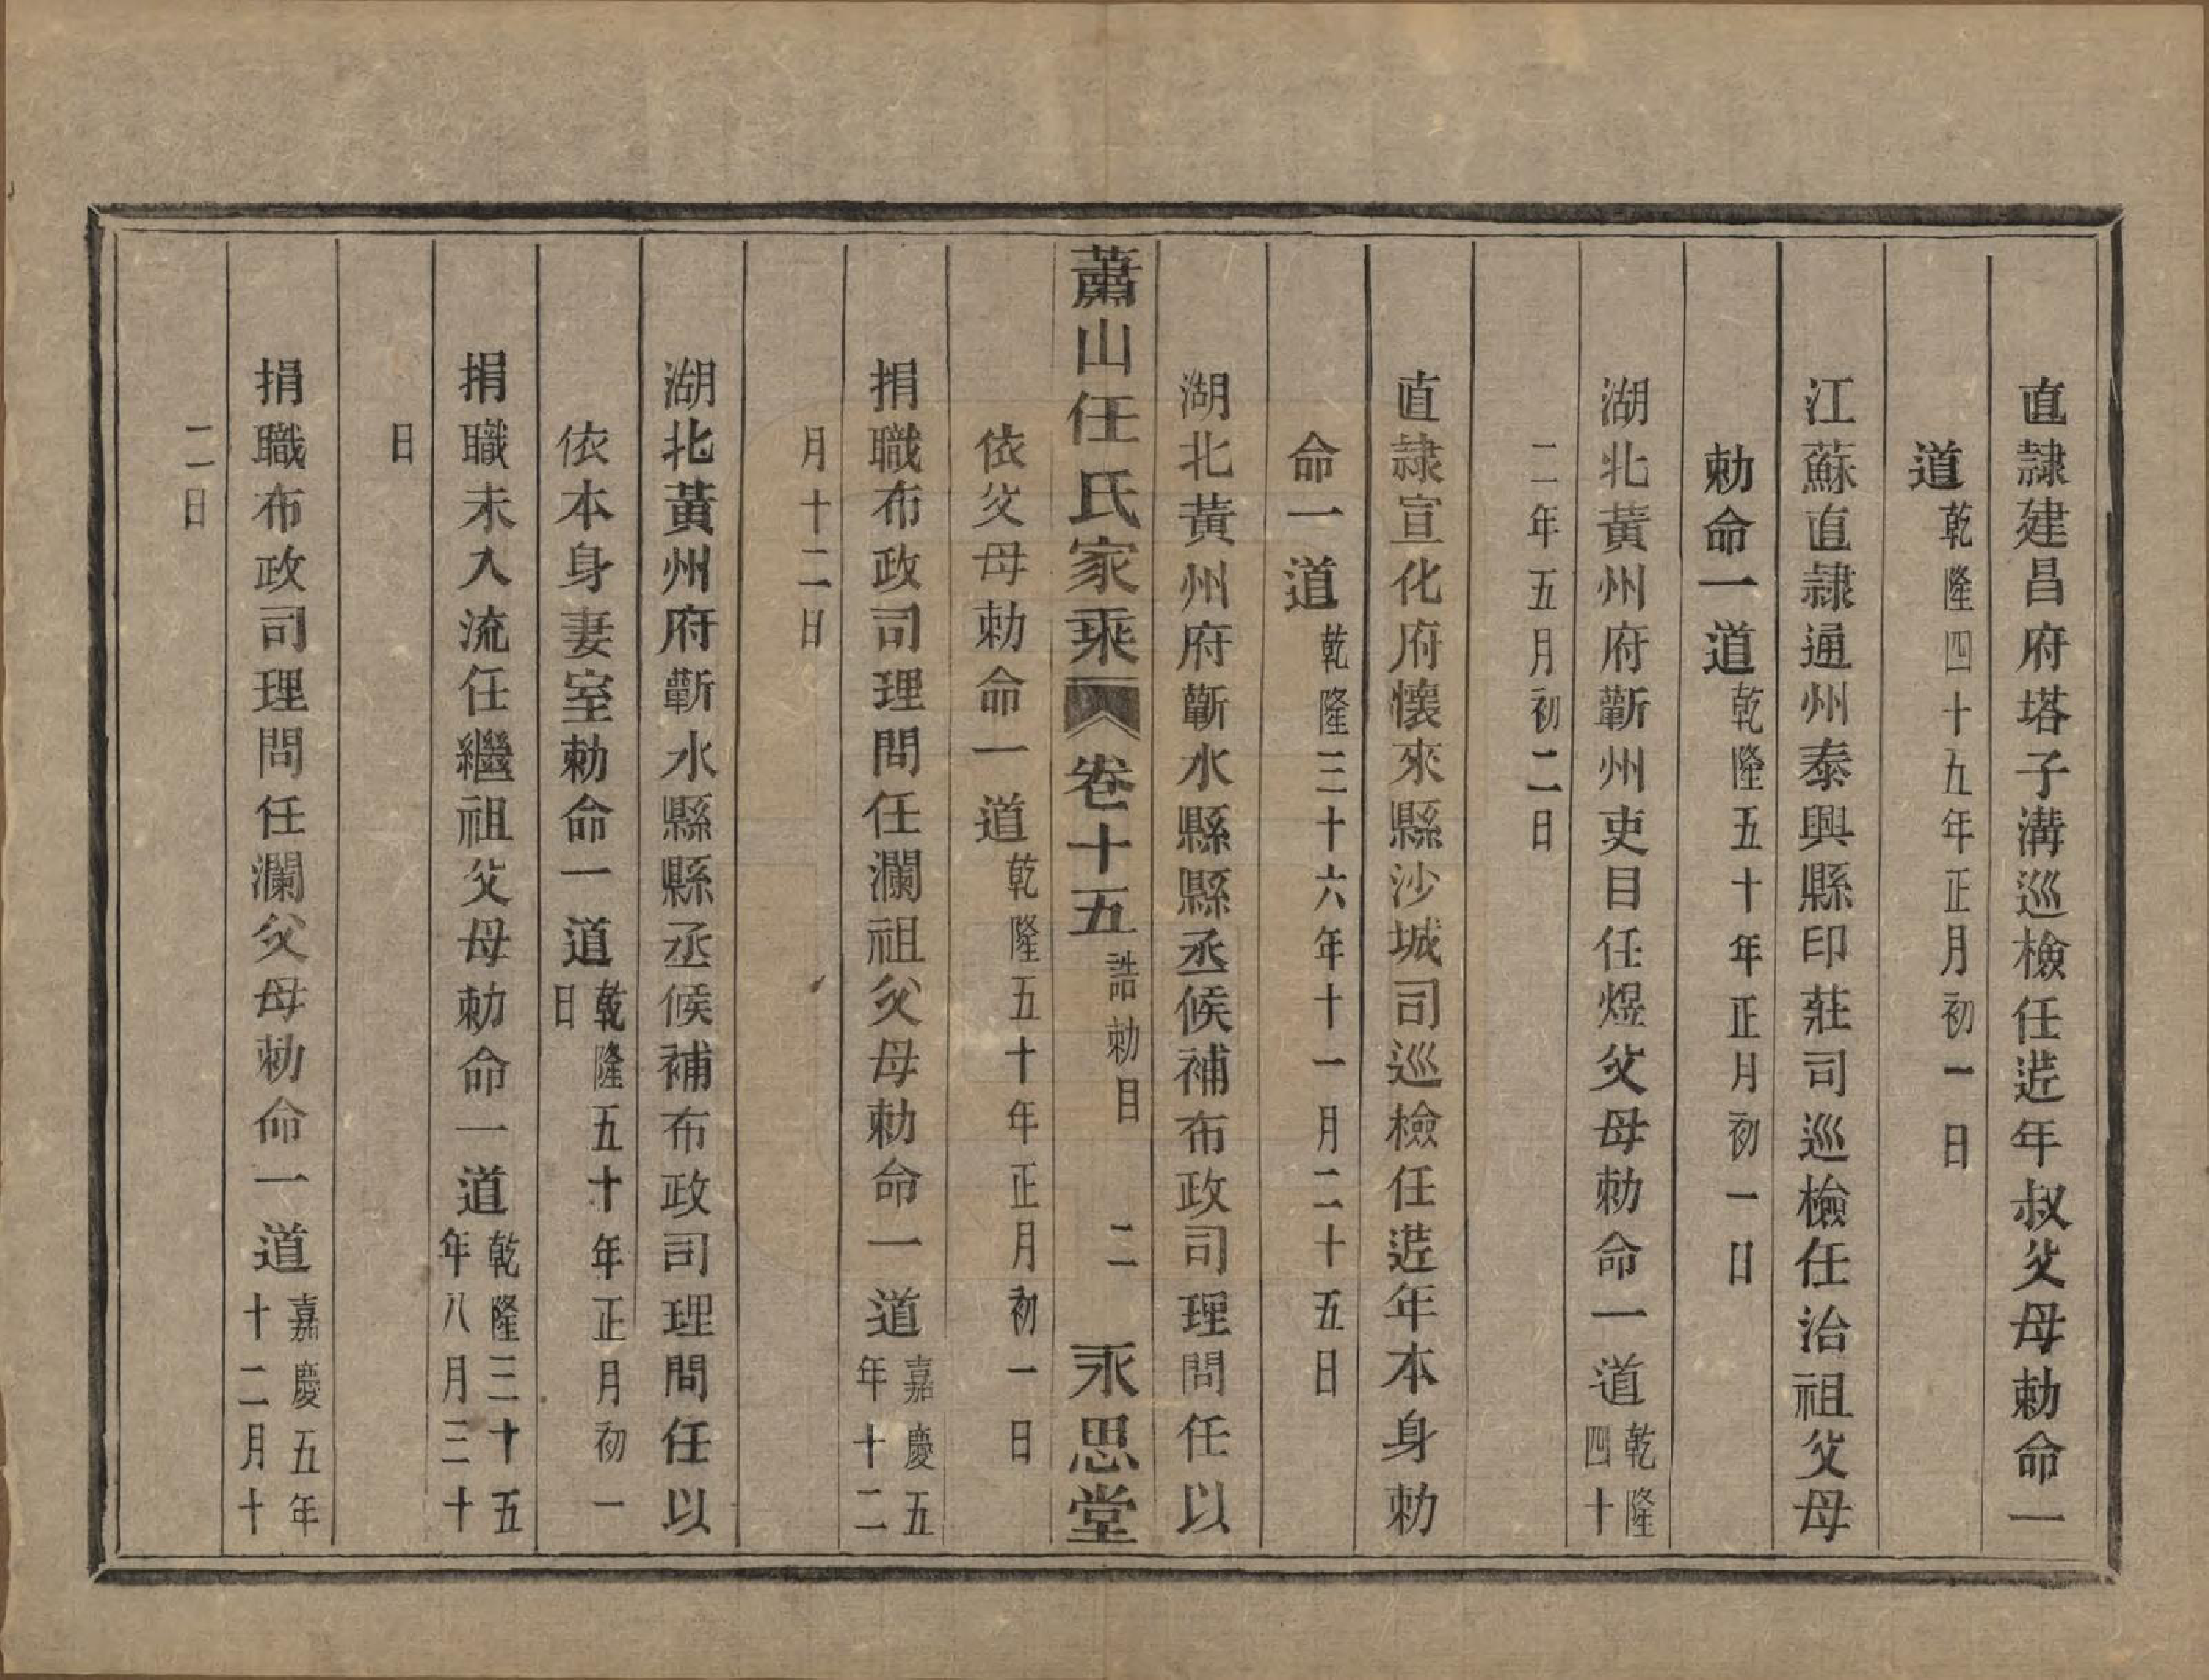 直隸建昌府塔子溝巡檢任𨓜年叔父母勅命一
道乾隆四十九年正月初一日
江蘇直隸通州泰興縣印莊司巡檢任治祖父母
勅命一道乾隆五十年正月初一日
湖北黃州府蘄州吏目任煜父母勅命一道乾隆四十
二年五月初二日
直隸宣化府懷來縣沙城司巡檢任𨓜年本身勅
命一道乾隆三十六年十一月二十五日
湖北黃州府蘄水縣縣丞候補布政司理問任以
蕭山任氏家乘 卷十五 誥勅目 二 永思堂
依父母勅命一道乾隆五十年正月初一日
捐職布政司理問任瀾祖父母勅命一道嘉慶五年十二
月十二日
湖北黃州府蘄水縣縣丞候補布政司理問任以
依本身妻室勅命一道乾隆五十年正月初一日
捐職未入流任繼祖父母勅命一道乾隆三十五年八月三十
日
捐職布政司理問任瀾父母勅命一道嘉慶五年十二月十
二日